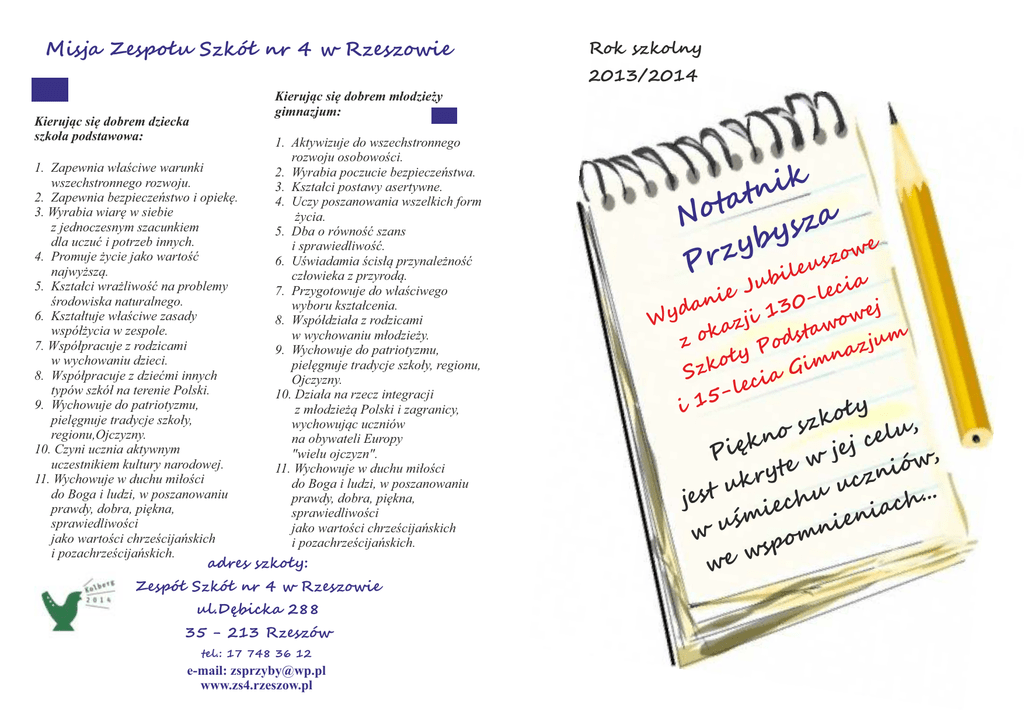 Misja Zespołu Szkół nr 4 w Rzeszowie
Kierując się dobrem dziecka
szkoła podstawowa:
1. Zapewnia właściwe warunki
wszechstronnego rozwoju.
2. Zapewnia bezpieczeństwo i opiekę.
3. Wyrabia wiarę w siebie
z jednoczesnym szacunkiem
dla uczuć i potrzeb innych.
4. Promuje życie jako wartość
najwyższą.
5. Kształci wrażliwość na problemy
środowiska naturalnego.
6. Kształtuje właściwe zasady
współżycia w zespole.
7. Współpracuje z rodzicami
w wychowaniu dzieci.
8. Współpracuje z dziećmi innych
typów szkół na terenie Polski.
9. Wychowuje do patriotyzmu,
pielęgnuje tradycje szkoły,
regionu,Ojczyzny.
10. Czyni ucznia aktywnym
uczestnikiem kultury narodowej.
11. Wychowuje w duchu miłości
do Boga i ludzi, w poszanowaniu
prawdy, dobra, piękna,
sprawiedliwości
jako wartości chrześcijańskich
i pozachrześcijańskich.
Kierując się dobrem młodzieży
gimnazjum:
1. Aktywizuje do wszechstronnego
rozwoju osobowości.
2. Wyrabia poczucie bezpieczeństwa.
3. Kształci postawy asertywne.
4. Uczy poszanowania wszelkich form
życia.
5. Dba o równość szans
i sprawiedliwość.
6. Uświadamia ścisłą przynależność
człowieka z przyrodą.
7. Przygotowuje do właściwego
wyboru kształcenia.
8. Współdziała z rodzicami
w wychowaniu młodzieży.
9. Wychowuje do patriotyzmu,
pielęgnuje tradycje szkoły, regionu,
Ojczyzny.
10. Działa na rzecz integracji
z młodzieżą Polski i zagranicy,
wychowując uczniów
na obywateli Europy
"wielu ojczyzn".
11. Wychowuje w duchu miłości
do Boga i ludzi, w poszanowaniu
prawdy, dobra, piękna,
sprawiedliwości
jako wartości chrześcijańskich
i pozachrześcijańskich.
Kolberg
2014
adres szkoły:
Zespół Szkół nr 4 w Rzeszowie
ul.Dębicka 288
35 - 213 Rzeszów
tel.: 17 748 36 12
e-mail: zsprzyby@wp.pl
www.zs4.rzeszow.pl
Rok szkolny
2013/2014
Notatnik
Przybysza
Wydanie Jubileuszowe
z okazji 130-lecia
Szkoły Podstawowej
i 15-lecia Gimnazjum
Piękno szkoły
jest ukryte w jej celu,
w uśmiechu uczniów,
we wspomnieniach...